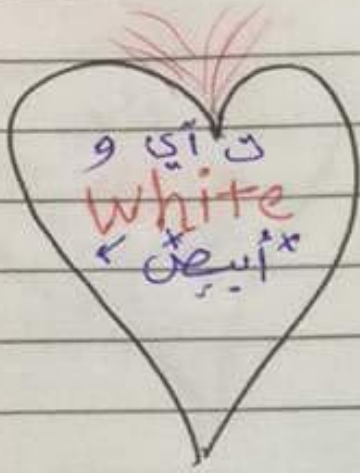 و آي ت
White
أبيض